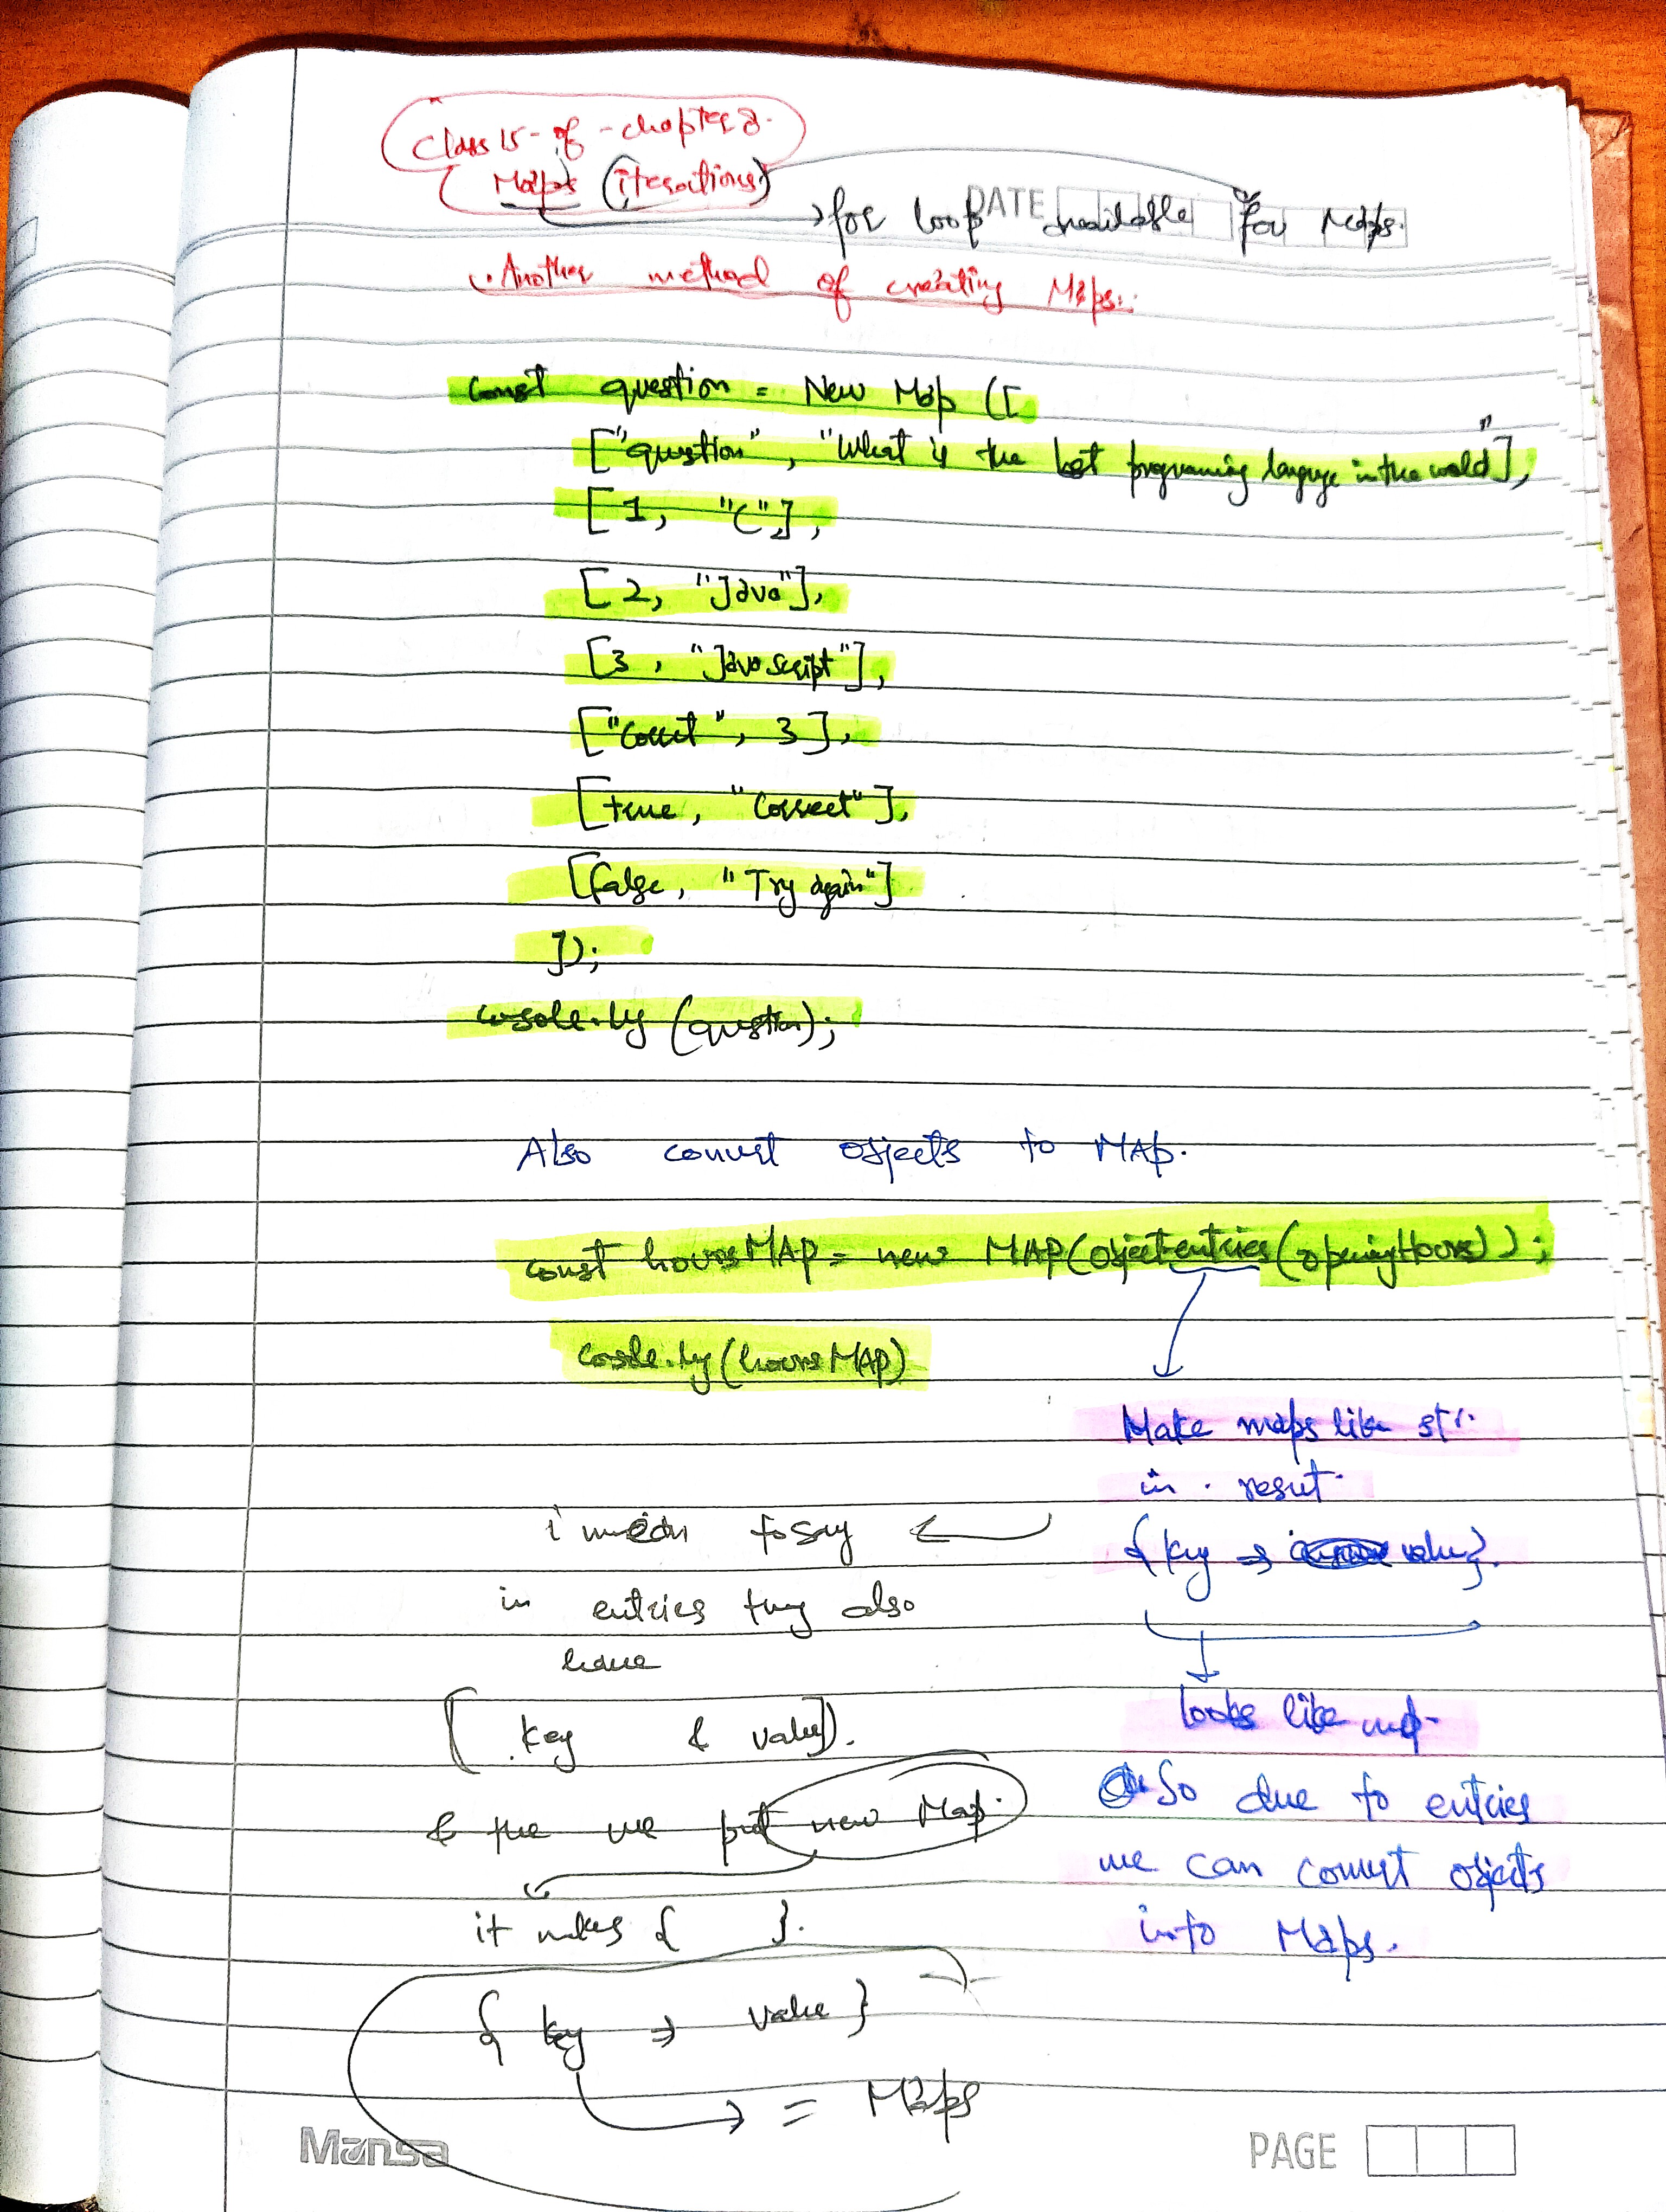 Class 15 - of - chapter 2.
Maps (iterations)
DATE
for loop available for Maps.
Another method of creating Maps:
const question = New Map ([
["question", "What is the best programing languge in the world"],
[1, "C"],
[2, "Java"],
[3, "Javascript"],
["Correct", 3],
[true, "Correct"],
[false, "Try again"]
]);
console.log (question);
Also convert objects to MAP.
const hoursMAP = new MAP(object.entries(openingHours));
console.log (hoursMAP)
Make maps like
in result
{ key ⇒ value}.
looks like map
So due to entries
we can convert objects
into Maps.
i mean to say
in entries they also
have
[ key & value].
& we put new Map.
it makes { }.
{ key ⇒ value }
= Maps
Mansa
PAGE